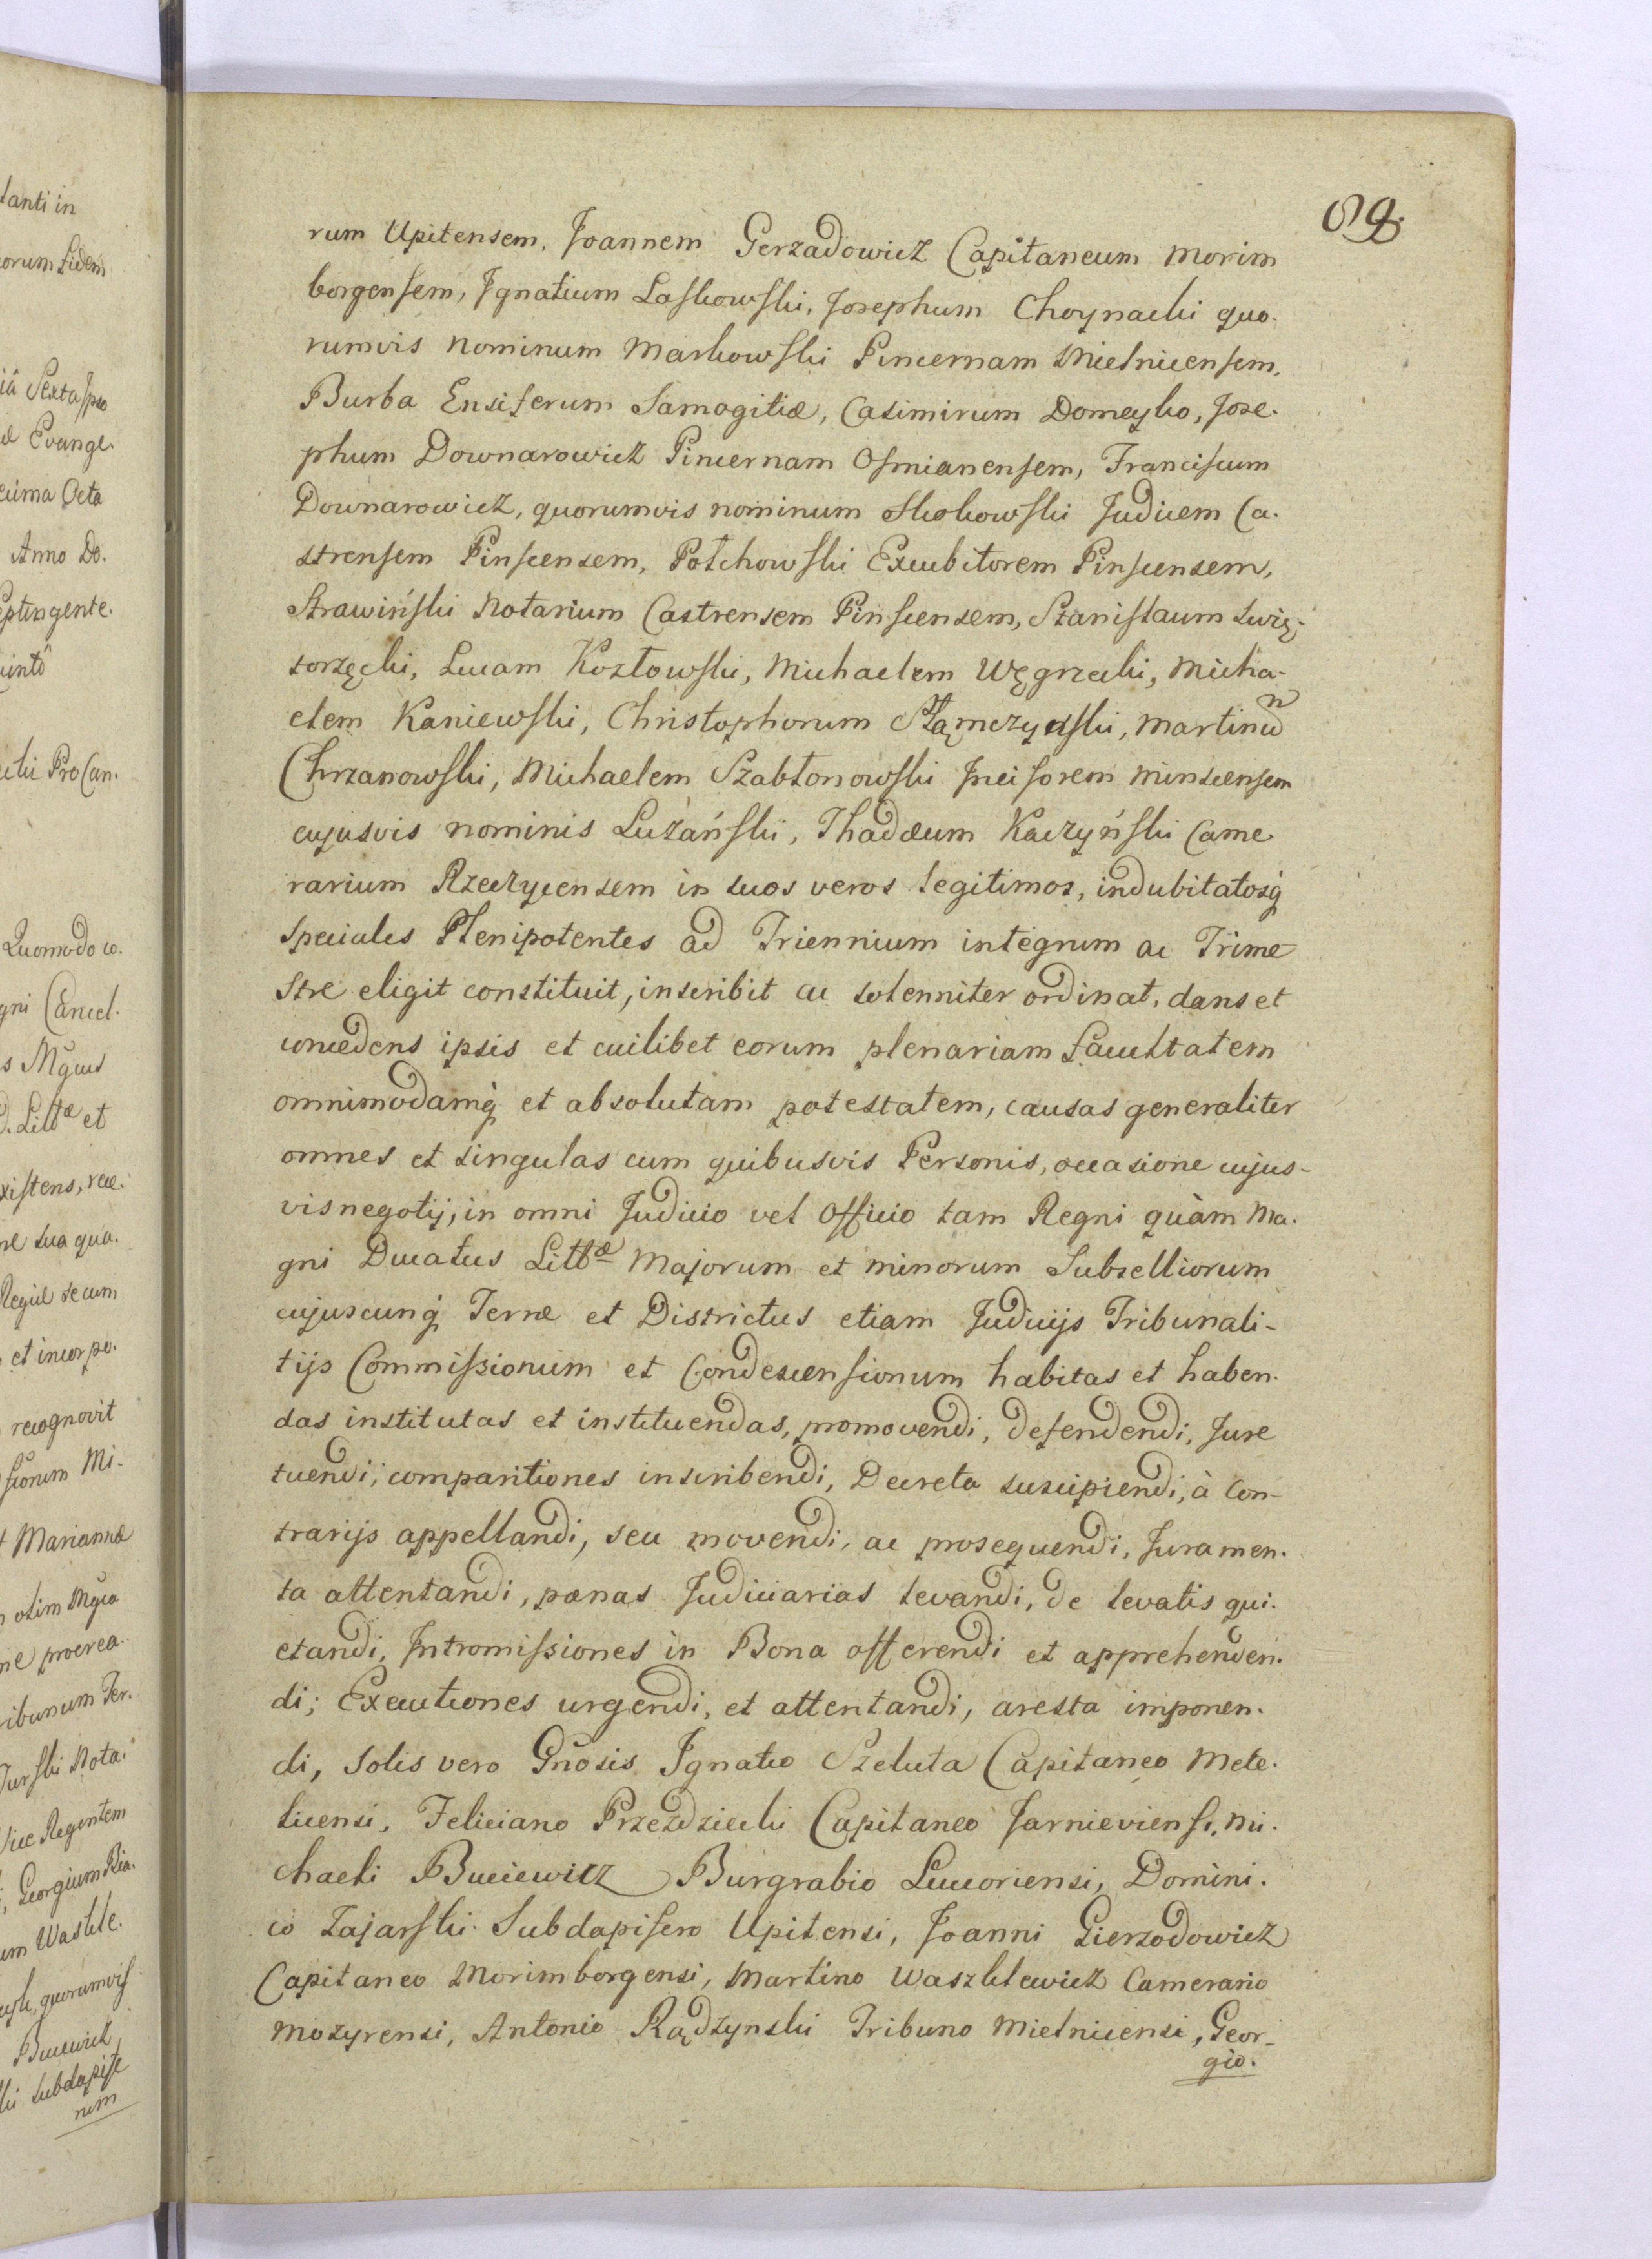 69.
rum Upitensem, Joannem Gerzadowicz Capitaneum Morim
borgensem, Ignatium Laskowski, Josephum Choynacki quo-
rumvis nominum Markowski Pincernam Mielnicensem,
Burba Ensiferum Samogitiæ, Casimirum Domeyko, Jose-
phum Downarowicz Pincernam Osmianensem, Franciscum
Downarowicz, quorumvis nominum Skokowski Judicem Ca-
strensem Pinscensem, Potchowski Excubitorem Pinscensem,
Strawiński Notarium Castrensem Pinscensem, Stanislaum Swię-
torzęcki, Lucam Kozłowski, Michaelem Węgrzecki, Micha-
elem Kaniewski, Christophorum Słamczynski, Martinum
Chrzanowski, Michaelem Szabłonowski Incisorem Minscensem
cujusvis nominis Lużański, Thaddæum Kaczyński Came-
rarium Rzeczycensem in suos veros legitimos, indubitatosq́
speciales Plenipotentes ad Triennium integrum ac Trime
stre eligit constituit, inscribit ac solenniter ordinat, dans et
concedens ipsis et cuilibet eorum plenariam facultatem
omnimodamq́ et absolutam potestatem, causas generaliter
omnes et singulas cum quibusvis Personis, occasione cujus-
vis negotij, in omni Judicio vel Officio tam Regni quàm Ma-
gni Ducatus Littæ Majorum et minorum Subselliorum
cujuscunq́ Terræ et Districtus etiam Judicijs Tribunali-
tijs Commissionum et Condescensionum habitas et haben-
das institutas et instituendas, promovendi, defendendi, Jure
tuendi, comparitiones inscribendi, Decreta suscipiendi, à Con-
trarijs appellandi, seu movendi, ac prosequendi, Juramen-
ta attentandi, pænas Judiciarias levandi, de levatis qui-
etandi, Intromissiones in Bona offerendi et apprehenden-
di; Executiones urgendi, et attentandi, aresta imponen-
di, solis vero Gnosis Ignatio Szeluta Capitaneo Mete-
licensi, Feliciano Przezdziecki Capitaneo Jarnieviensi, Mi-
chaeli Buciewicz Burgrabio Luceoriensi, Domini-
co Zajarski Subdapifero Upitensi, Joanni Gierzodowicz
Capitaneo Morimborgensi, Martino Waszklewicz Camerario
Mozyrensi, Antonio Rądzynski Tribuno Mielnicensi, Geor-
gio.